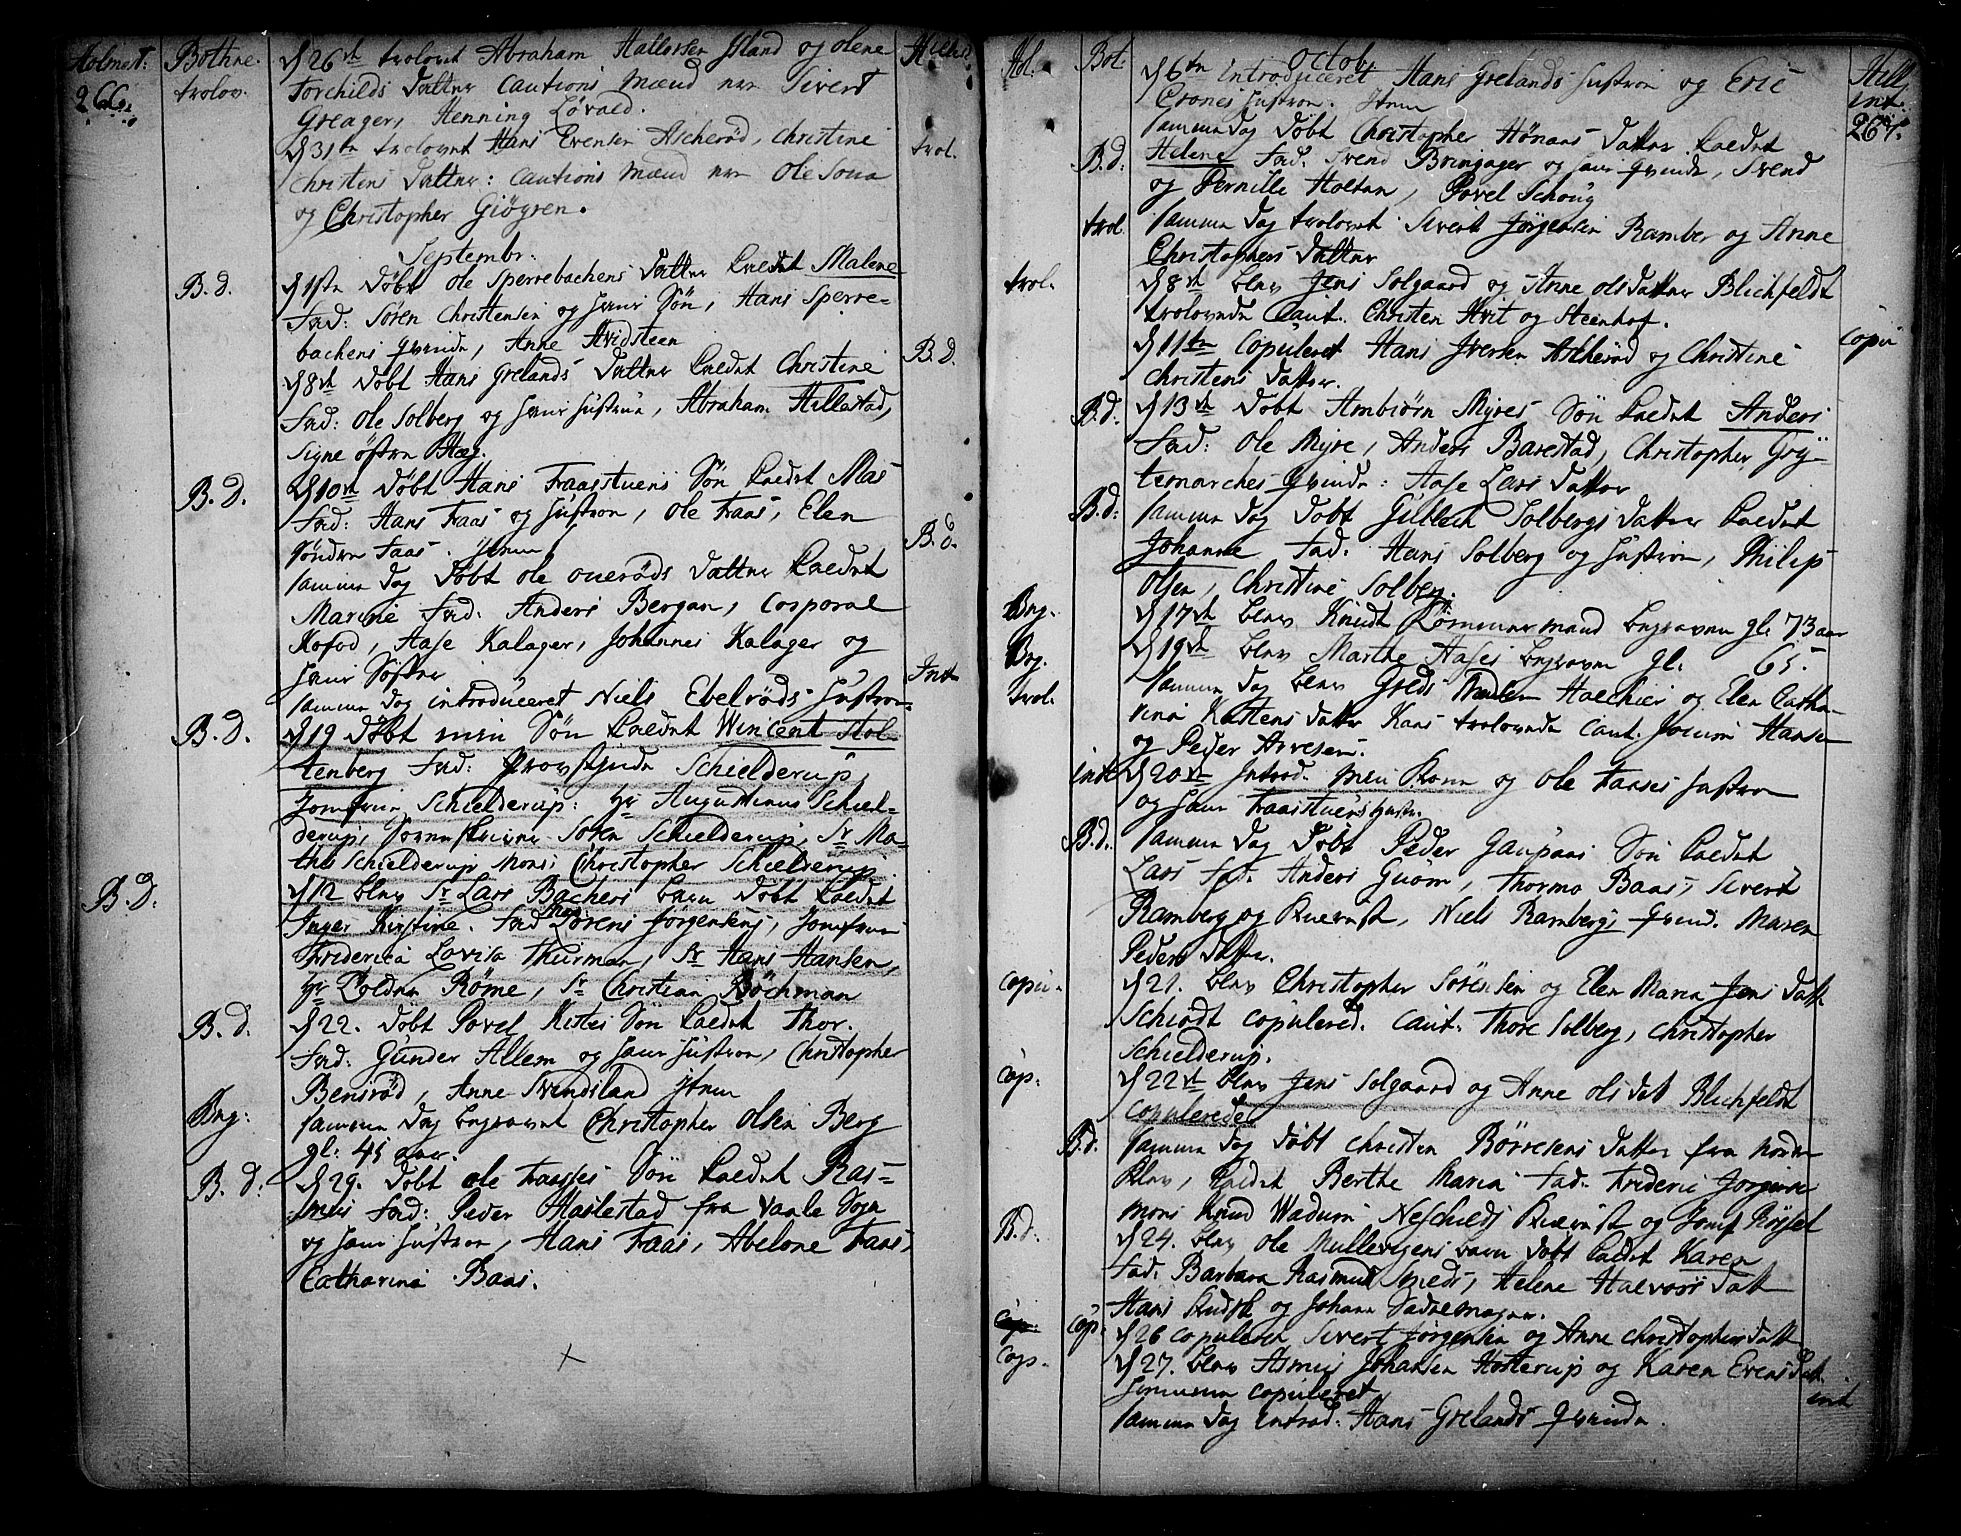 Holmest: Bothne. d 26de trolovet Abraham Hallorsen Island og olene Hillest.
266. trolov. Torchilds datter Cautions mænd ere Sivert
Greager, Henning Løvald.
d 31te trolovet Hans Evensen Ascherød, Christine trol.
Christens datter: Cautions mænd ere Ole Sona
og Christopher Giøgren.
Septembr:
B. d. d 1ste døbt ole Sperrebachens datter kaldet Malene
Fad: Søren Christensen og hans Søn, Hans Sperre-
bachens qvinde, Anne Hvidsteen
d 8de døbt Hans Grelands datter kaldet Christine B. D.
Fad: Ole Solberg og hans hustrue, Abraham Hillestad,
Signe østre Hæg.
B. D. d 10de døbt Hans Faasstuens Søn kaldet Mas
Fad: Hans Faas og hustroe, ole Faas, Elen
Søndre Faas. Item
samme dag døbt ole ouerøds datter kaldet B. d.
Marine Fad: Anders Bergan, Corporal
Kofod, Aase Kalager, Johannes Kalager og
hans Søster
samme dag introduceret Niels Ebelrøds hustroe Int
B. D. d 19 døbt min Søn kaldet Wincent Stol-
tenberg Fad: Provstinde Schielderup,
Jomfrue Schielderup: Hr Augustinus Schiel-
derup, Sorenskriver Søren Schielderup, Sr Ma-
ths Schielderup Mons: Christopher Schielderup
B. D. d 12 blev Sr Lars Bachers barn døbt kaldet
Inger Kirstine. Fad Sørens Jørgensens, Jomfrue
Friderica Lovisa Thurman, Sr Hans Hansen,
Hr Zolder Røme, Sr Christian Bøchman
B. d. d 22. døbt Povel Kistes Søn kaldet Thor.
Fad: Gunder Allem og hans hustroe, Christopher
Bensrød, Anne Svendsland Item
Beg: samme dag begravet Christopher Olsen Berg
gl: 45 aar.
B. d: d 29. døbt ole Faasses Søn kaldet Ras-
mus Fad: Peder Haslestad fra Vaale Sogn
og hans hustroe, Hans Faas, Abelone Faas,
Catharina Baas.
Hol. Bot. Octob. Hill.
d 6te Introduceret Hans Grelands hustroe og Eric int.
Crones hustroe. Item 267.
samme dag døbt Christopher Hønaas datter kaldet
B. d: Helene Fad. Svend Bringager og hans qvinde, Svend
og Pernille Holtan, Povel Schoug
trol. samme dag trolovet Sivert Jørgensen Ramber og Anne
Christophers datter
trol. d 8de blev Jens Solgaard og Anne olsdatter Blichfeldt
trolovede Caut. Christen Hvit og Steenhof.
d 11te Copuleret Hans Iversen Ascherød og Christine copu
Christens datter.
B. d: d 13de døbt Ambiørn Myres Søn kaldet Anders
Fad: Ole Myre, Anders Barestad, Christopher Gry-
temarches qvinde: Aase Lars datter
B. d: samme dag døbt Gullech Solbergs datter kaldet
Johanne Fad: Hans Solberg og hustroe, Philip
Olsen, Christine Solberg.
Beg. d 17de blev Knudt Rømmermand begraven gl: 73 aar
Beg. d 19de blev Marthe Aases begraven gl. 65.
trol. samme dag blev Halchier og Elen Catha-
rina Kastens datter Kaas trolovede Caut. Jocum Hansen
og Peder Arvesen.
int d 20de Introd. min Kone og Ole Faases hustroe
og Hans Faasstuens hustr.
B. d. samme dag døbt Peder Gaupaas Søn kaldet
Lars Fad: Anders Guom, Thormo Baas, Sivert
Ramberg og Quernst, Niels Rambergs qvind. Maren
Peders datter.
copu- d 21. blev Christopher Sørensen og Elen Maria Jens datt
Schiødt copulered. Caut. Thore Solberg, Christopher
Schielderup.
Cop: d 22de blev Jens Solgaard og Anne olsdat Blichfeldt
copulerede
B. d. samme dag døbt Christen Børresens datter fra Nordre
kaldet Berthe Maria Fad: Frideric Jorgensen
Mons Knud Wadum og Jomf Røyset
B. d. d 24. blev ole Mullevigens barn døbt kaldet Karen
Fad. Barbara Rasmus Smeds, Helene Halvors datt
Hans Kudsk og Johan Sadelmager.
Cop. d 26 copuleret Sivert Jørgensen og Anne Christophersdatt
Cop. d 27. blev Asmus Johansen Hosterup og Karen Evens dat
copuleret int
samme dag introd: Hans Grelands qvinde.